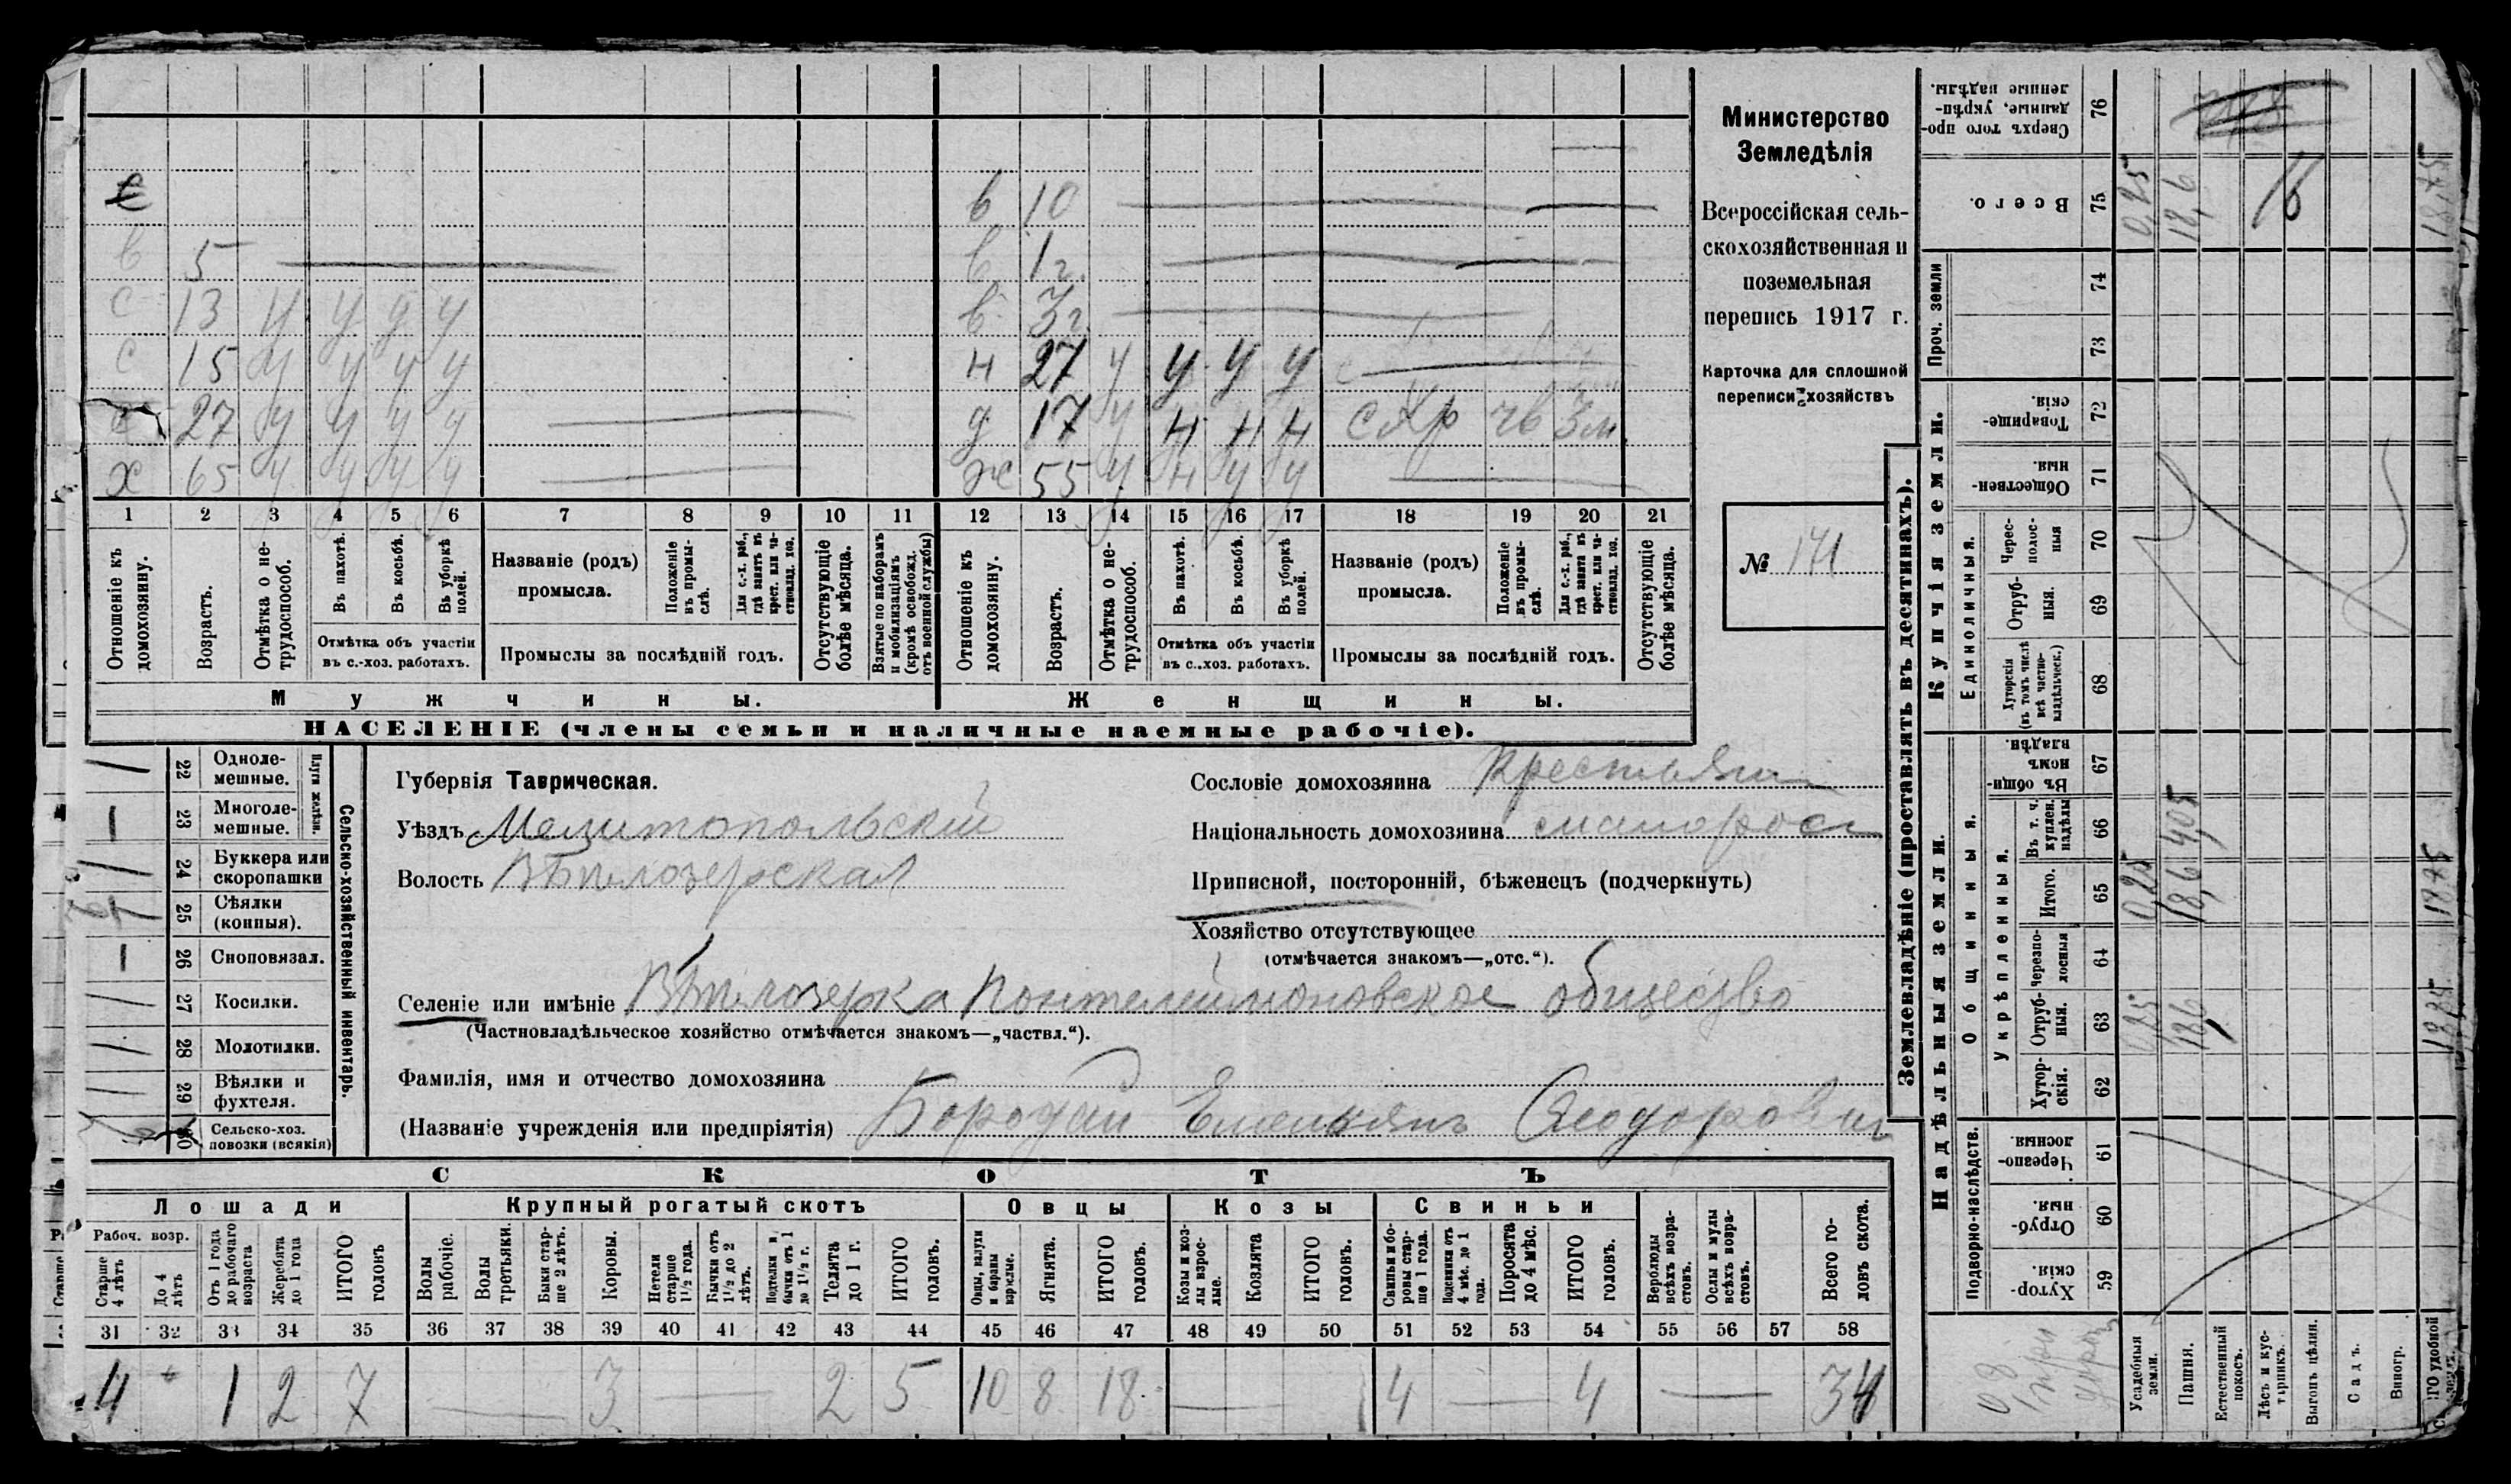 Министерство
Земледѣлія
Всероссійская сель-
скохозяйственная и
поземельная
перепись 1917 г.
Карточка для сплошной
переписи хозяйствъ
№ 171
в 10
в 5 в 1 г.
с 13 у у у у в 3 г.
с 15 у у у у н 27 у у у у
с 27 у у у у д 17 у н н н
х 65 у у у у ж 55 у н у у
1 2 3 4 5 6 7 8 9 10 11 12 13 14 15 16 17 18 19 20 21
Отношеніе къ домохозяину.
Возрастъ.
Отмѣтка о не-трудоспособ.
Въ пахотѣ.
Въ косьбѣ.
Въ уборкѣ полей.
Отмѣтка объ участіи въ с.-хоз. работахъ.
Названіе (родъ) промысла.
Положеніе въ промы-слѣ.
Для с.-х. раб., гдѣ занятъ въ крест. или ча-стновлад. хоз.
Промыслы за послѣдній годъ.
Отсутствующіе болѣе мѣсяца.
Взятые по наборамъ и мобилизаціямъ (кромѣ освобожд. отъ военной службы)
Отношеніе къ домохозяину.
Возрастъ.
Отмѣтка о не-трудоспособ.
Въ пахотѣ.
Въ косьбѣ.
Въ уборкѣ полей.
Отмѣтка объ участіи въ с..хоз. работахъ.
Названіе (родъ) промысла.
Положеніе въ промы-слѣ.
Для с.-х. раб., гдѣ занята въ крест. или ча-стновлад. хоз.
Промыслы за послѣдній годъ.
Отсутствующіе болѣе мѣсяца.
Мужчины. Женщины.
НАСЕЛЕНІЕ (члены семьи и наличные наемные рабочіе).
22 Одноле-мешные.
23 Многоле-мешные.
Плуги желѣзн.
24 Буккера или скоропашки
25 Сѣялки (конныя).
26 Сноповязал.
27 Косилки.
28 Молотилки.
29 Вѣялки и фухтеля.
30 Сельско-хоз. повозки (всякія)
Сельско-хозяйственный инвентарь.
Губернія Таврическая.
Уѣздъ Мелитопольскій
Волость Бѣлозерская
Сословіе домохозяина Крестьянин
Національность домохозяина малорос
Приписной, посторонній, бѣженецъ (подчеркнуть)
Хозяйство отсутствующее
(отмѣчается знакомъ—„отс.“).
Селеніе или имѣніе Бѣлозерка Понтелеимоновское общество
(Частновладѣльческое хозяйство отмѣчается знакомъ—„частвл.“).
Фамилія, имя и отчество домохозяина
(Названіе учрежденія или предпріятія) Бородай Емельянъ Ѳеодорович
СКОТЪ
Лошади Крупный рогатый скотъ Овцы Козы Свиньи
Рабоч. возр.
Старше 4 лѣтъ
До 4 лѣтъ
Отъ 1 года до рабочаго возраста
Жеребята до 1 года
ИТОГО головъ
Волы рабочіе.
Волы третьяки.
Быки стар-ше 2 лѣтъ.
Коровы.
Нетели старше 1½ года.
Бычки отъ 1½ до 2 лѣтъ.
Подтелки и бычки отъ 1 до 1½ г.
Телята до 1 г.
ИТОГО головъ.
Овцы, валухи и бараны взрослые.
Ягнята.
ИТОГО головъ.
Козы и коз-лы взрос-лые.
Козлята
ИТОГО головъ.
Свиньи и бо-ровы стар-ше 1 года.
Подсвинки отъ 4 мѣс. до 1 года.
Поросята до 4 мѣс.
ИТОГО головъ.
Верблюды всѣхъ возра-стовъ.
Ослы и мулы всѣхъ возра-стовъ.
Всего го-ловъ скота.
31 32 33 34 35 36 37 38 39 40 41 42 43 44 45 46 47 48 49 50 51 52 53 54 55 56 57 58
4 1 2 7 3 2 5 10 8 18 4 4 34
Землевладѣніе (проставлять въ десятинахъ).
Купчія земли.
Надѣльныя земли.
Сверхъ того про-данные, укрѣп-ленные надѣлы. 76
Всего. 75 0,25 18,6 18,75
Проч. земли 74 73
Товарище-скія. 72
Обществен-ныя. 71
Единоличныя.
Черес-полос-ныя 70
Отруб-ныя. 69
Хуторскія (въ томъ числѣ всѣ частно-владѣльческ.) 68
Въ общи-номъ владѣн. 67
Общинныя.
Укрѣпленныя.
Въ т. ч. куплен. надѣлы 66 4,05
Итого. 65 0,25 18,6 18,75
Черезпо-лосныя 64
Отруб-ныя. 63
Хутор-скія. 62
Подворно-наслѣдств.
Черезпо-лосныя. 61
Отруб-ныя. 60
Хутор-скія. 59
Усадебныя земли.
Пашня.
Естественный покосъ.
Лѣсъ и кус-тарникъ.
Выгонъ цѣлин.
Садъ.
Виногр.